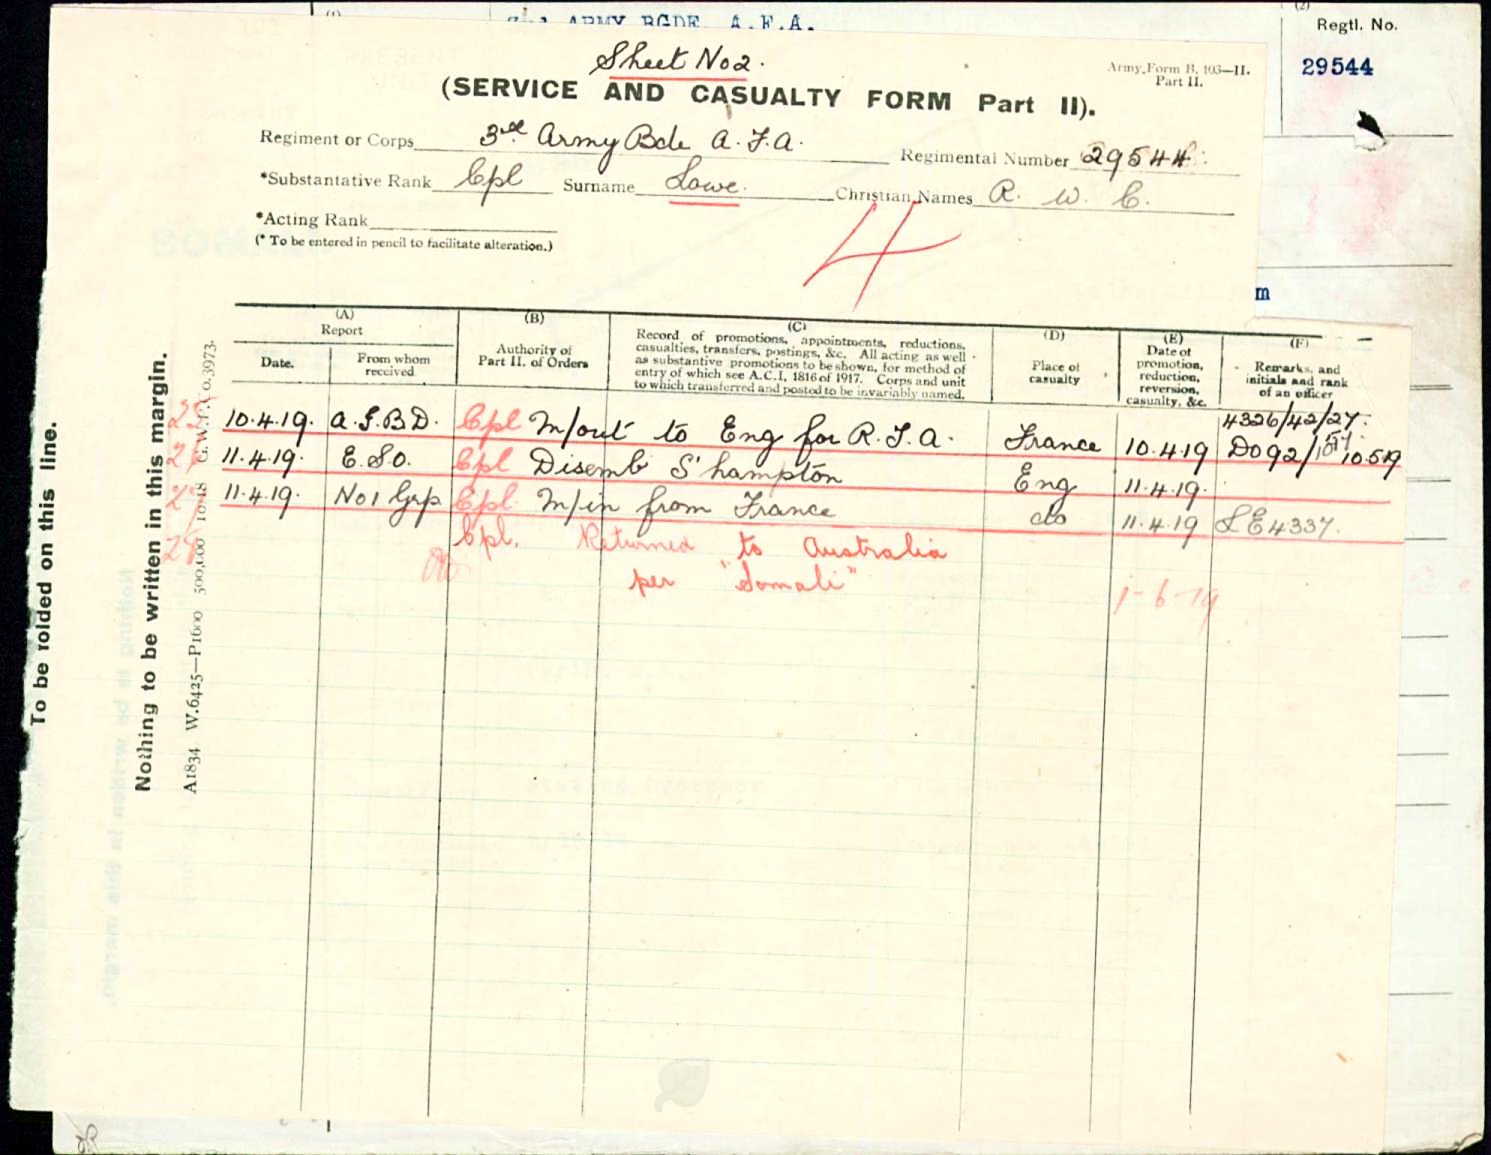 (1)
3rd ARMY BGDE. A.F.A.
(2)
Regtl. No.
29544
m
Sheet No 2.
Army Form B. 103—II.
Part II.
(SERVICE AND CASUALTY FORM Part II).
Regiment or Corps 3rd Army Bde A.F.A. Regimental Number 29544
*Substantative Rank Cpl Surname Lowe. Christian Names R. W. C.
*Acting Rank
(* To be entered in pencil to facilitate alteration.)
4
(A)
Report
Date.
From whom
received
(B)
Authority of
Part II. of Orders
(C)
Record of promotions, appointments, reductions,
casualties, transfers, postings, &c. All acting as well
as substantive promotions to be shown, for method of
entry of which see A.C.I, 1816 of 1917. Corps and unit
to which transferred and posted to be invariably named.
(D)
Place of
casualty
(E)
Date of
promotion,
reduction,
reversion,
casualty, &c.
(F)
Remarks, and
initials and rank
of an officer
4326/42/27.
10.4.19. A.G.B.D. Cpl M/out to Eng for R.T.A. France 10.4.19 DO 92/ 10.5.19
11.4.19. E.S.O. Cpl Disemb S'hampton Eng 11.4.19.
11.4.19. No 1 Grp Cpl M/in from France do 11.4.19 LE4337.
Cpl. Returned to Australia
per "Somali" 1-6-19
To be folded on this line.
Nothing to be written in this margin.
A1834 W.6425—P1600 500,000 10/18 G.W.P.Co.3973.